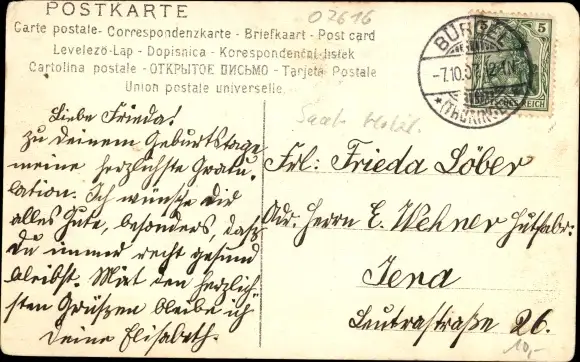 02616
POSTKARTE
Carte postale - Correspondenzkarte - Briefkaart - Post card
Levelező-Lap - Dopisnica - Korespondenční lístek
Cartolina postale - ОТКРЫТОЕ ПИСЬМО - Tarjeta Postale
Union postale universelle.
BÜRGEL
-7.10.07.
(THÜRINGEN)
5
REICH
Liebe Frieda!
Zu Deinem Geburtstage
meine herzlichste Gratu-
lation. Ich wünsche Dir
alles Gute, besonders, dasz
Du immer recht gesund
bleibst. Mit den herzlich-
sten Grüszen bleibe ich
Deine Elisabeth.
Frl: Frieda Löber
Adr. Herrn E. Wehner Hutfabr:
Jena
Leutrastraße 26.
10,-